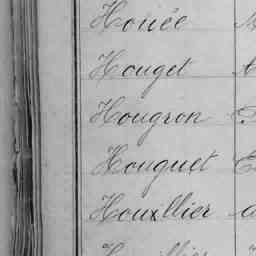 Houée
Houget
Hougron
Houguet
Houllier